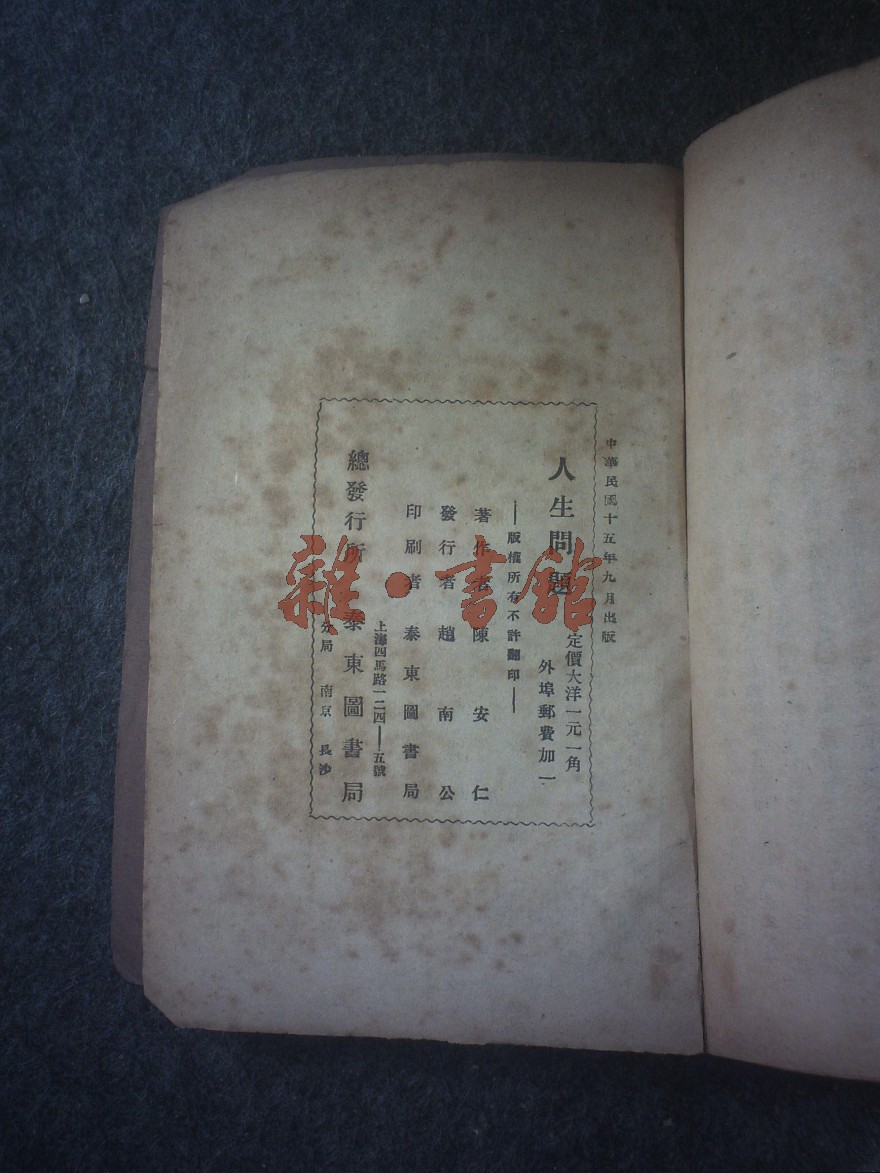 中華民國十五年九月出版
人生問題
定價大洋一元一角
外埠郵費加一
版權所有不許翻印
著作者陳安仁
發行者趙南公
印刷者泰東圖書局
上海四馬路一二四——五號
總發行所泰東圖書局
分局 南京 長沙
雜·書館